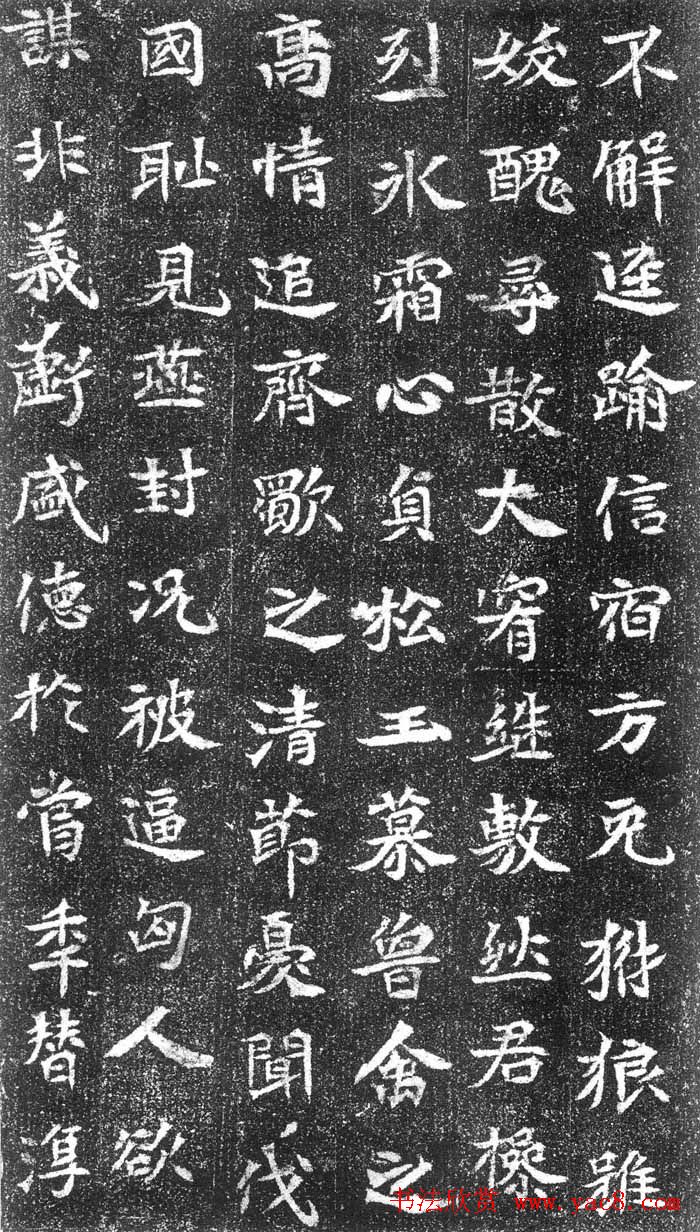 不解踰信宿方免豺狼雖
姣醜尋散大宥継敷然君操
烈氷霜心貞松玉慕魯禽之
高情追齊歜之清節憂聞伐
國恥見燕封況被逼匈人欲
謀非義虧盛德於當年替淳
书法欣赏 www.yac8.com